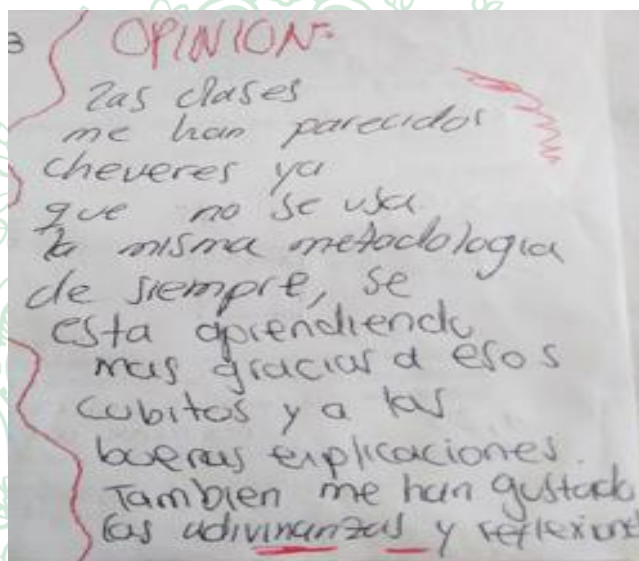 OPINION:
las clases
me han parecidos
cheveres ya
que no se usa
la misma metodologia
de siempre, se
esta aprendiendo
mas gracias a esos
cubitos y a las
buenas explicaciones.
Tambien me han gustado
las adivinanzas y reflexione